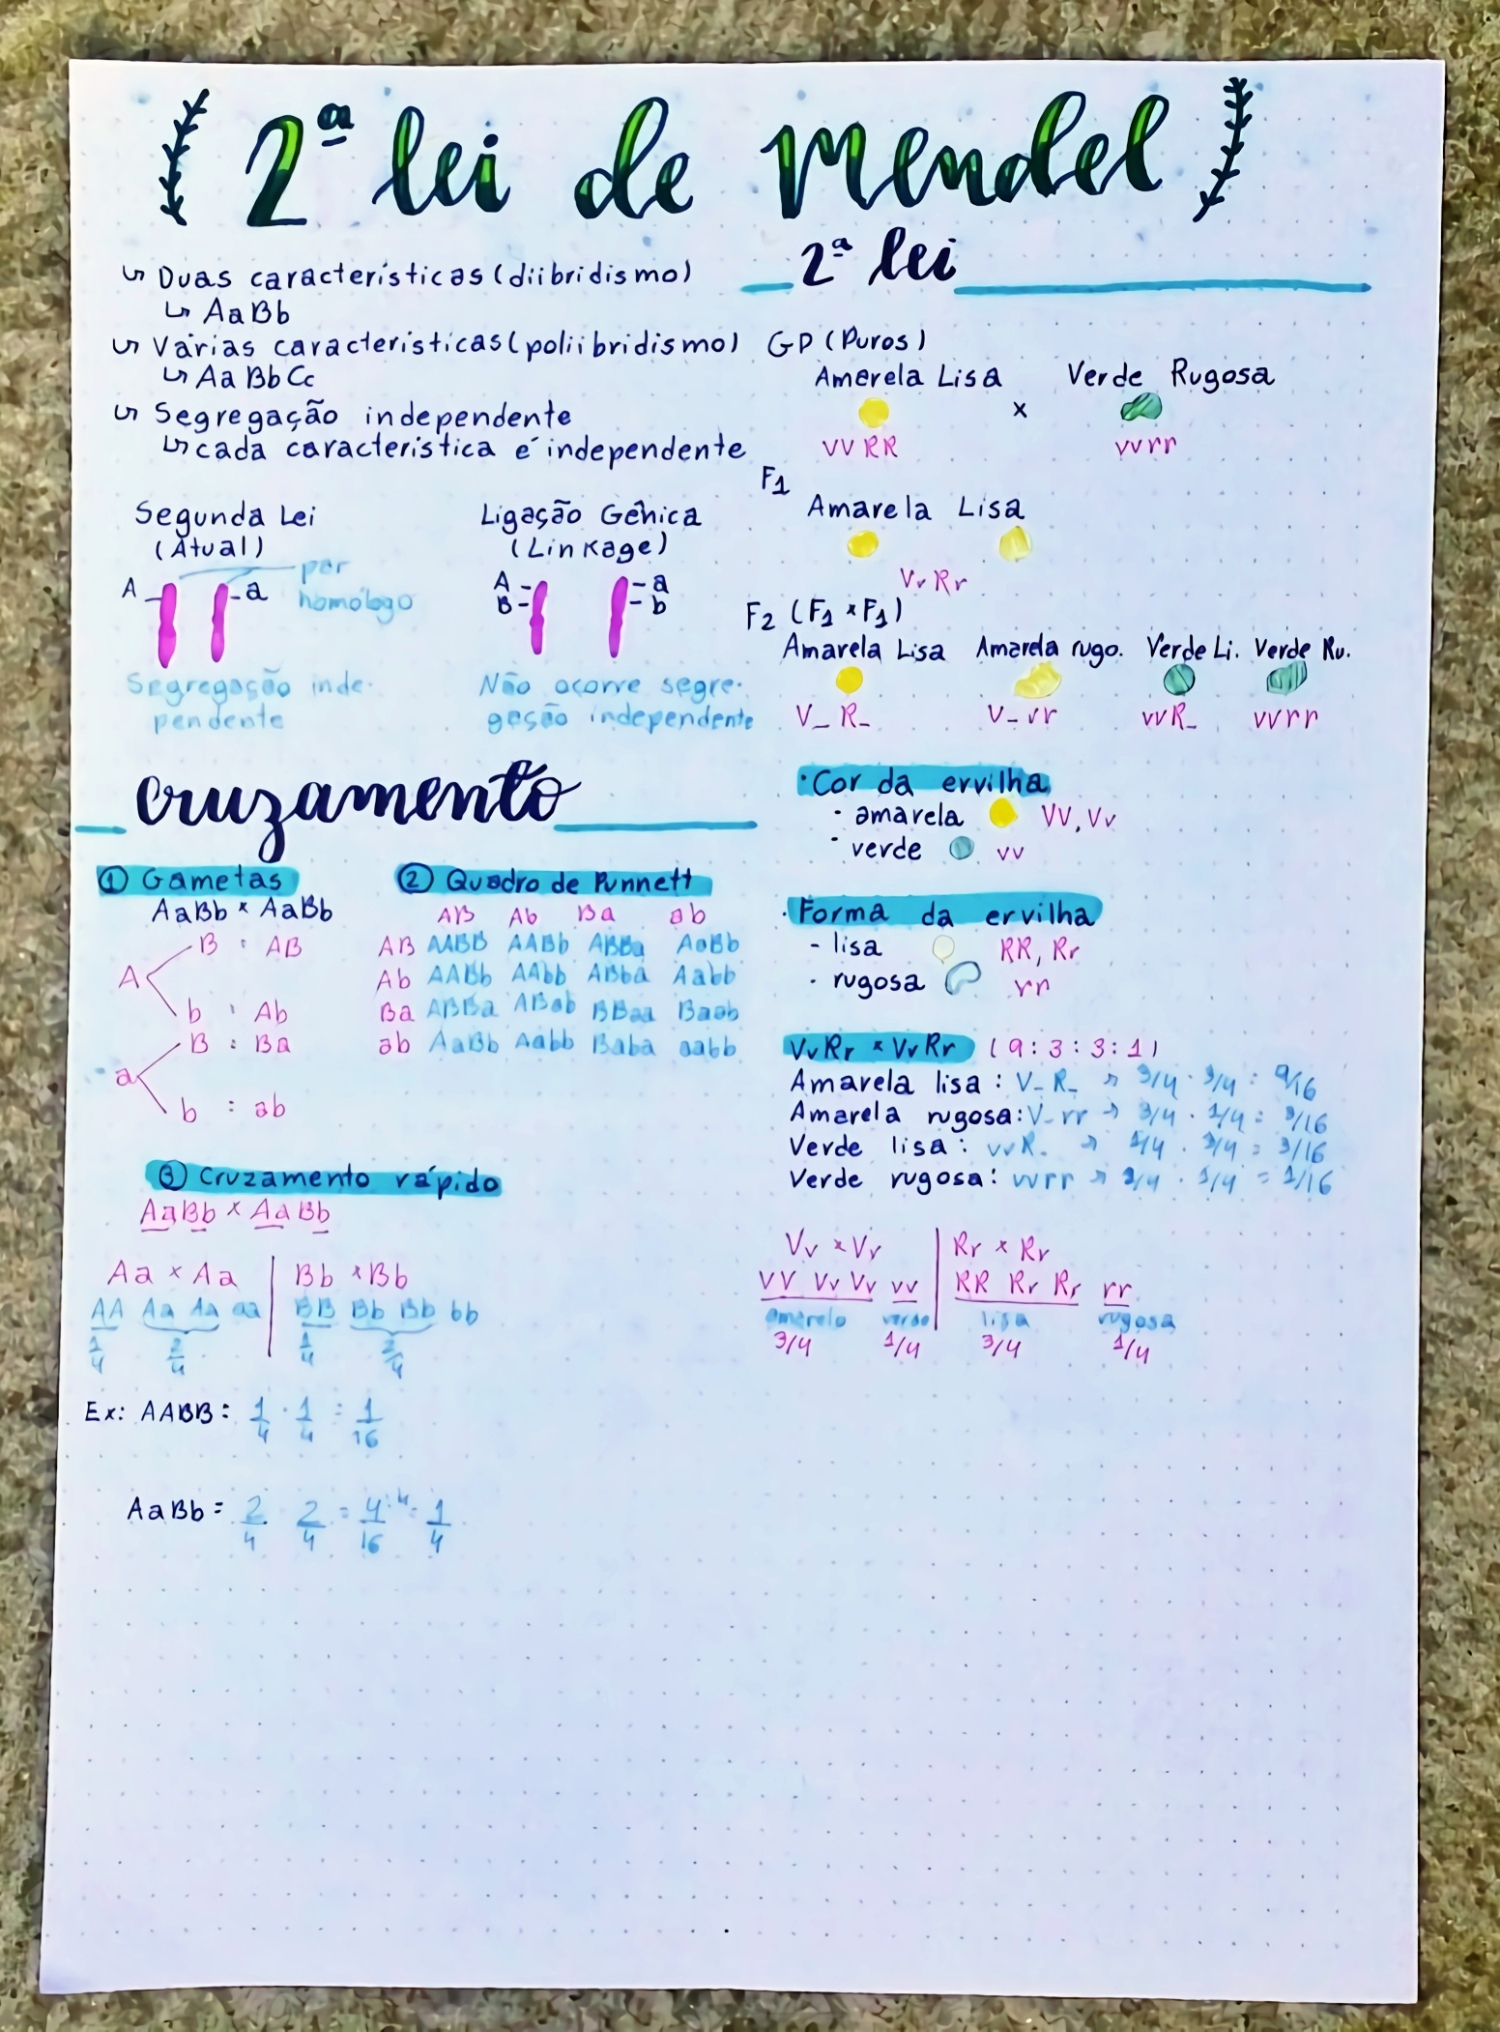 2ª lei de Mendel
↳ Duas características (diibridismo)
↳ AaBb
↳ Várias características (poliibridismo)
↳ AaBbCc
↳ Segregação independente
↳ cada característica é independente
Segunda Lei
(Atual)
A
a
par
homólogo
Segregação inde-
pendente
Ligação Gênica
(Linkage)
A
B
a
b
Não ocorre segre-
gação independente
cruzamento
① Gametas
AaBb × AaBb
A
B : AB
b : Ab
a
B : Ba
b : ab
② Quadro de Punnett
AB Ab Ba ab
AB AABB AABb ABBa AaBb
Ab AABb AAbb ABba Aabb
Ba ABBa ABab BBaa Baab
ab AaBb Aabb Baba aabb
③ Cruzamento rápido
AaBb × AaBb
Aa × Aa | Bb × Bb
AA Aa Aa aa | BB Bb Bb bb
1/4 2/4 | 1/4 2/4
Ex: AABB = 1/4 · 1/4 = 1/16
AaBb = 2/4 2/4 = 4/16 :4 = 1/4
2ª lei
GP (Puros)
Amarela Lisa × Verde Rugosa
VVRR vvrr
F1
Amarela Lisa
VvRr
F2 (F1 × F1)
Amarela Lisa Amarela rugo. Verde Li. Verde Ru.
V_R_ V_rr vvR_ vvrr
· Cor da ervilha
· amarela VV, Vv
· verde vv
· Forma da ervilha
- lisa RR, Rr
· rugosa rr
VvRr × VvRr (9:3:3:1)
Amarela lisa: V_R_ → 3/4 · 3/4 = 9/16
Amarela rugosa: V_rr → 3/4 · 1/4 = 3/16
Verde lisa: vvR_ → 1/4 · 3/4 = 3/16
Verde rugosa: vvrr → 1/4 · 1/4 = 1/16
Vv × Vv | Rr × Rr
VV Vv Vv vv | RR Rr Rr rr
amarelo verde | lisa rugosa
3/4 1/4 3/4 1/4